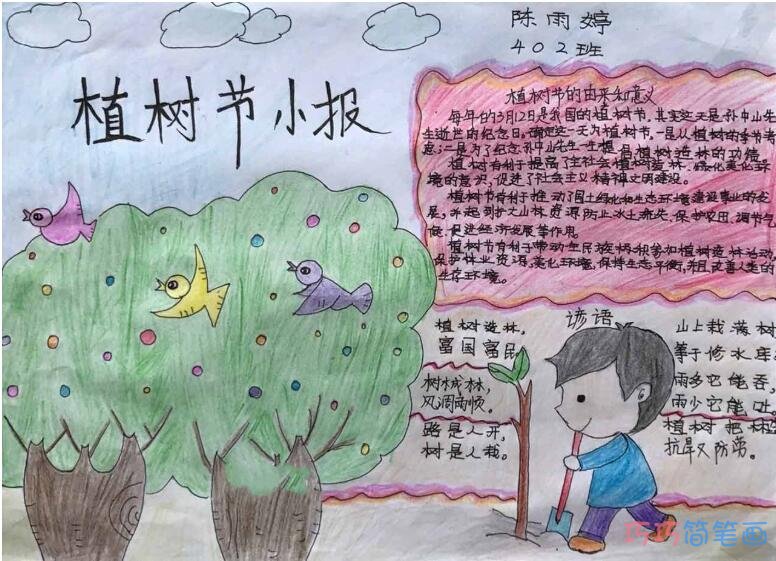 陈雨婷
402班
植树节小报
植树节的由来和意义
每年的3月12日是我国的植树节。其实这天是孙中山先
生逝世的纪念日。确定这一天为植树节。一是从植树的季节考
虑;二是为了纪念孙中山先生一生提倡植树造林的功绩。
植树节有利于提高了全社会植树造林、绿化美化环
境的意识,促进了社会主义精神文明建设。
植树节有利于推动了国土绿化和生态环境建设事业的发
展,并起到扩大山林资源、防止水土流失、保护农田、调节气
候、促进经济发展等作用。
植树节有利于带动全民族积极参加植树造林活动,
保护林业资源,美化环境,保持生态平衡,并且改善人类的
生存环境。
谚语
植树造林,
富国富民。
树成林,
风调雨顺。
路是人开,
树是人栽。
山上栽满树
等于修水库
雨多它能吞
雨少它能吐
植树把林造
抗旱又防涝。
巧巧简笔画